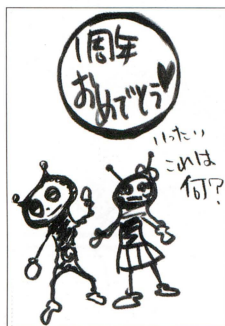 1周年
おめでとう♥
いったい
これは
何?